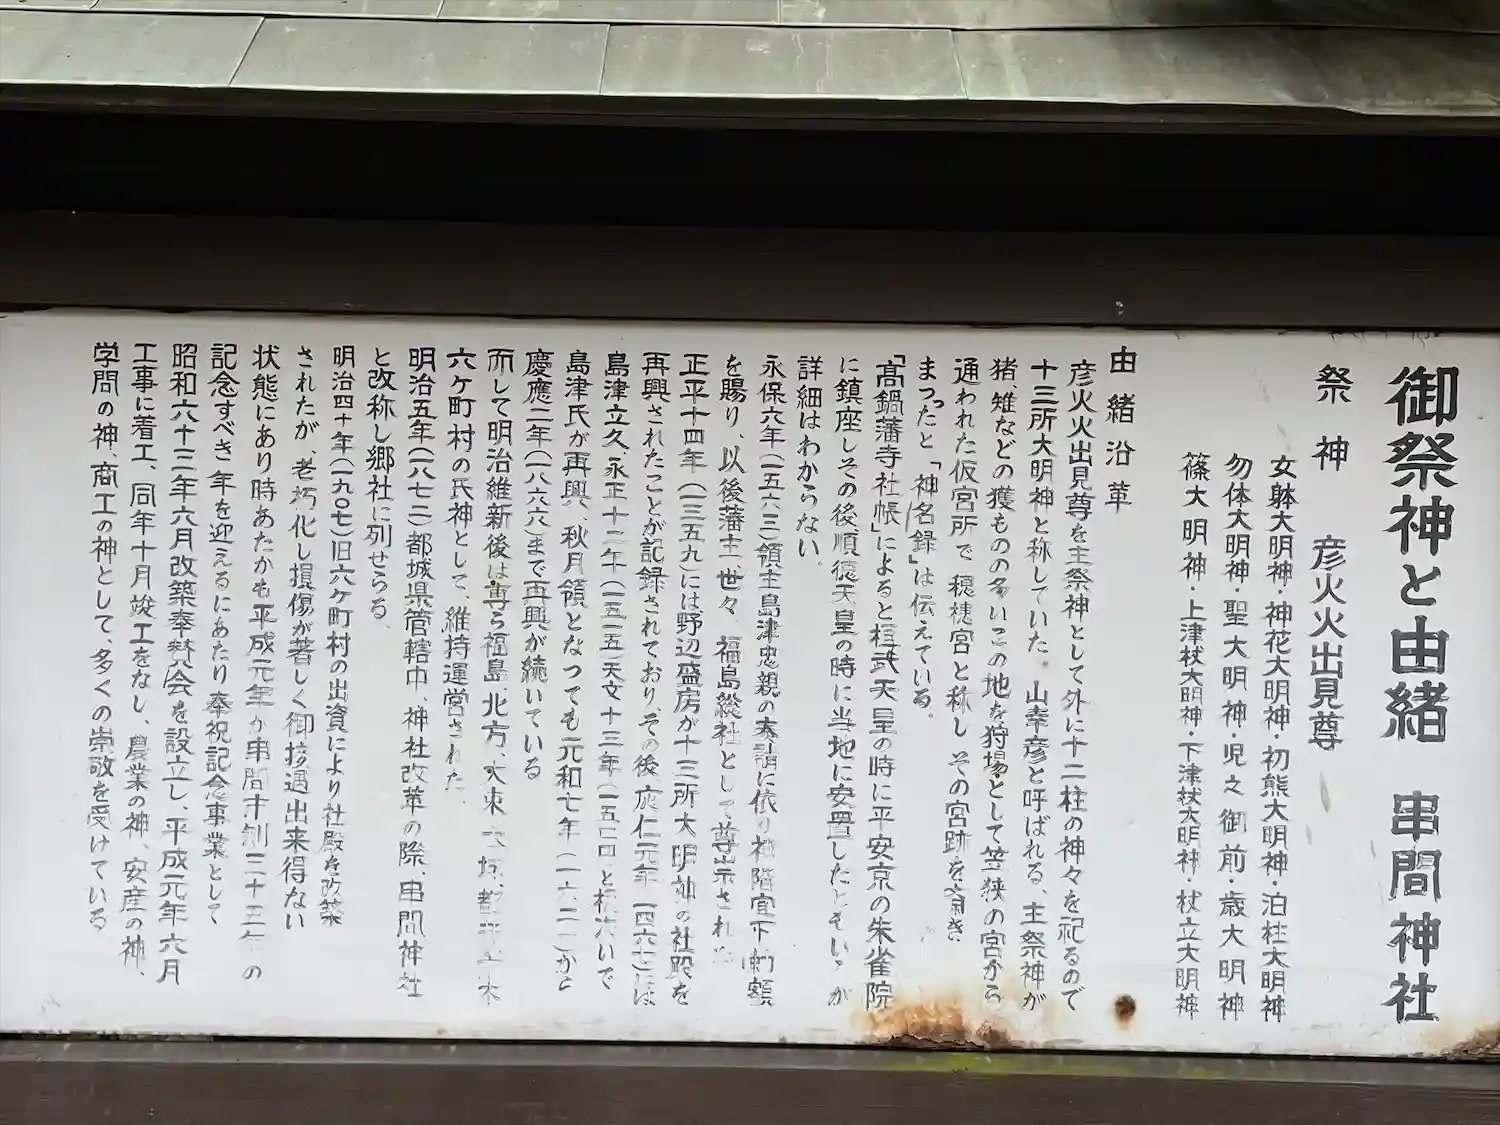 御祭神と由緒 串間神社
祭神 彦火火出見尊
女躰大明神・神花大明神・初熊大明神・泊柱大明神
勿体大明神・聖大明神・児之御前・歳大明神
篠大明神・上津杖大明神・下津杖大明神・杖立大明神
由緒沿革
彦火火出見尊を主祭神として外に十二柱の神々を祀るので
十三所大明神と称していた。山幸彦と呼ばれる、主祭神が
猪、雉などの獲ものの多いこの地を狩場として笠狭の宮から
通われた仮宮所で 穂穂宮と称し その宮跡を斎き
まつったと「神名録」は伝えている。
「髙鍋藩寺社帳」によると桓武天皇の時に平安京の朱雀院
に鎮座しその後順徳天皇の時に当地に安置したというが
詳細はわからない。
永保六年(一五六三)領主島津忠親の奏請に依り神階宣下勅額
を賜り、以後藩主世々、福島総社として尊崇され
正平十四年(一三五九)には野辺盛房が十三所大明神の社殿を
再興されたことが記録されており、その後応仁元年(一四六七)には
島津立久、永正十二年(一五一五)天文十三年(一五 と相次いで
島津氏が再興、秋月領となっても元和七年(一六二一)から
慶應二年(一八六六)まで再興が続いている
而して明治維新後は専ら福島、北方、大束
六ケ町村の氏神として、維持運営された
明治五年(一八七二)都城県管轄中、神社改革の際、串間神社
と改称し郷社に列せらる、
明治四十年(一九〇七)旧六ケ町村の出資により社殿を改築
されたが、老朽化し損傷が著しく御接遇出来得ない
状態にあり時あたかも平成元年が串間市制三十五年の
記念すべき年を迎えるにあたり奉祝記念事業として
昭和六十三年六月改築奉賛会を設立し、平成元年六月
工事に着工、同年十月竣工をなし、農業の神、安産の神、
学問の神、商工の神として、多くの崇敬を受けている